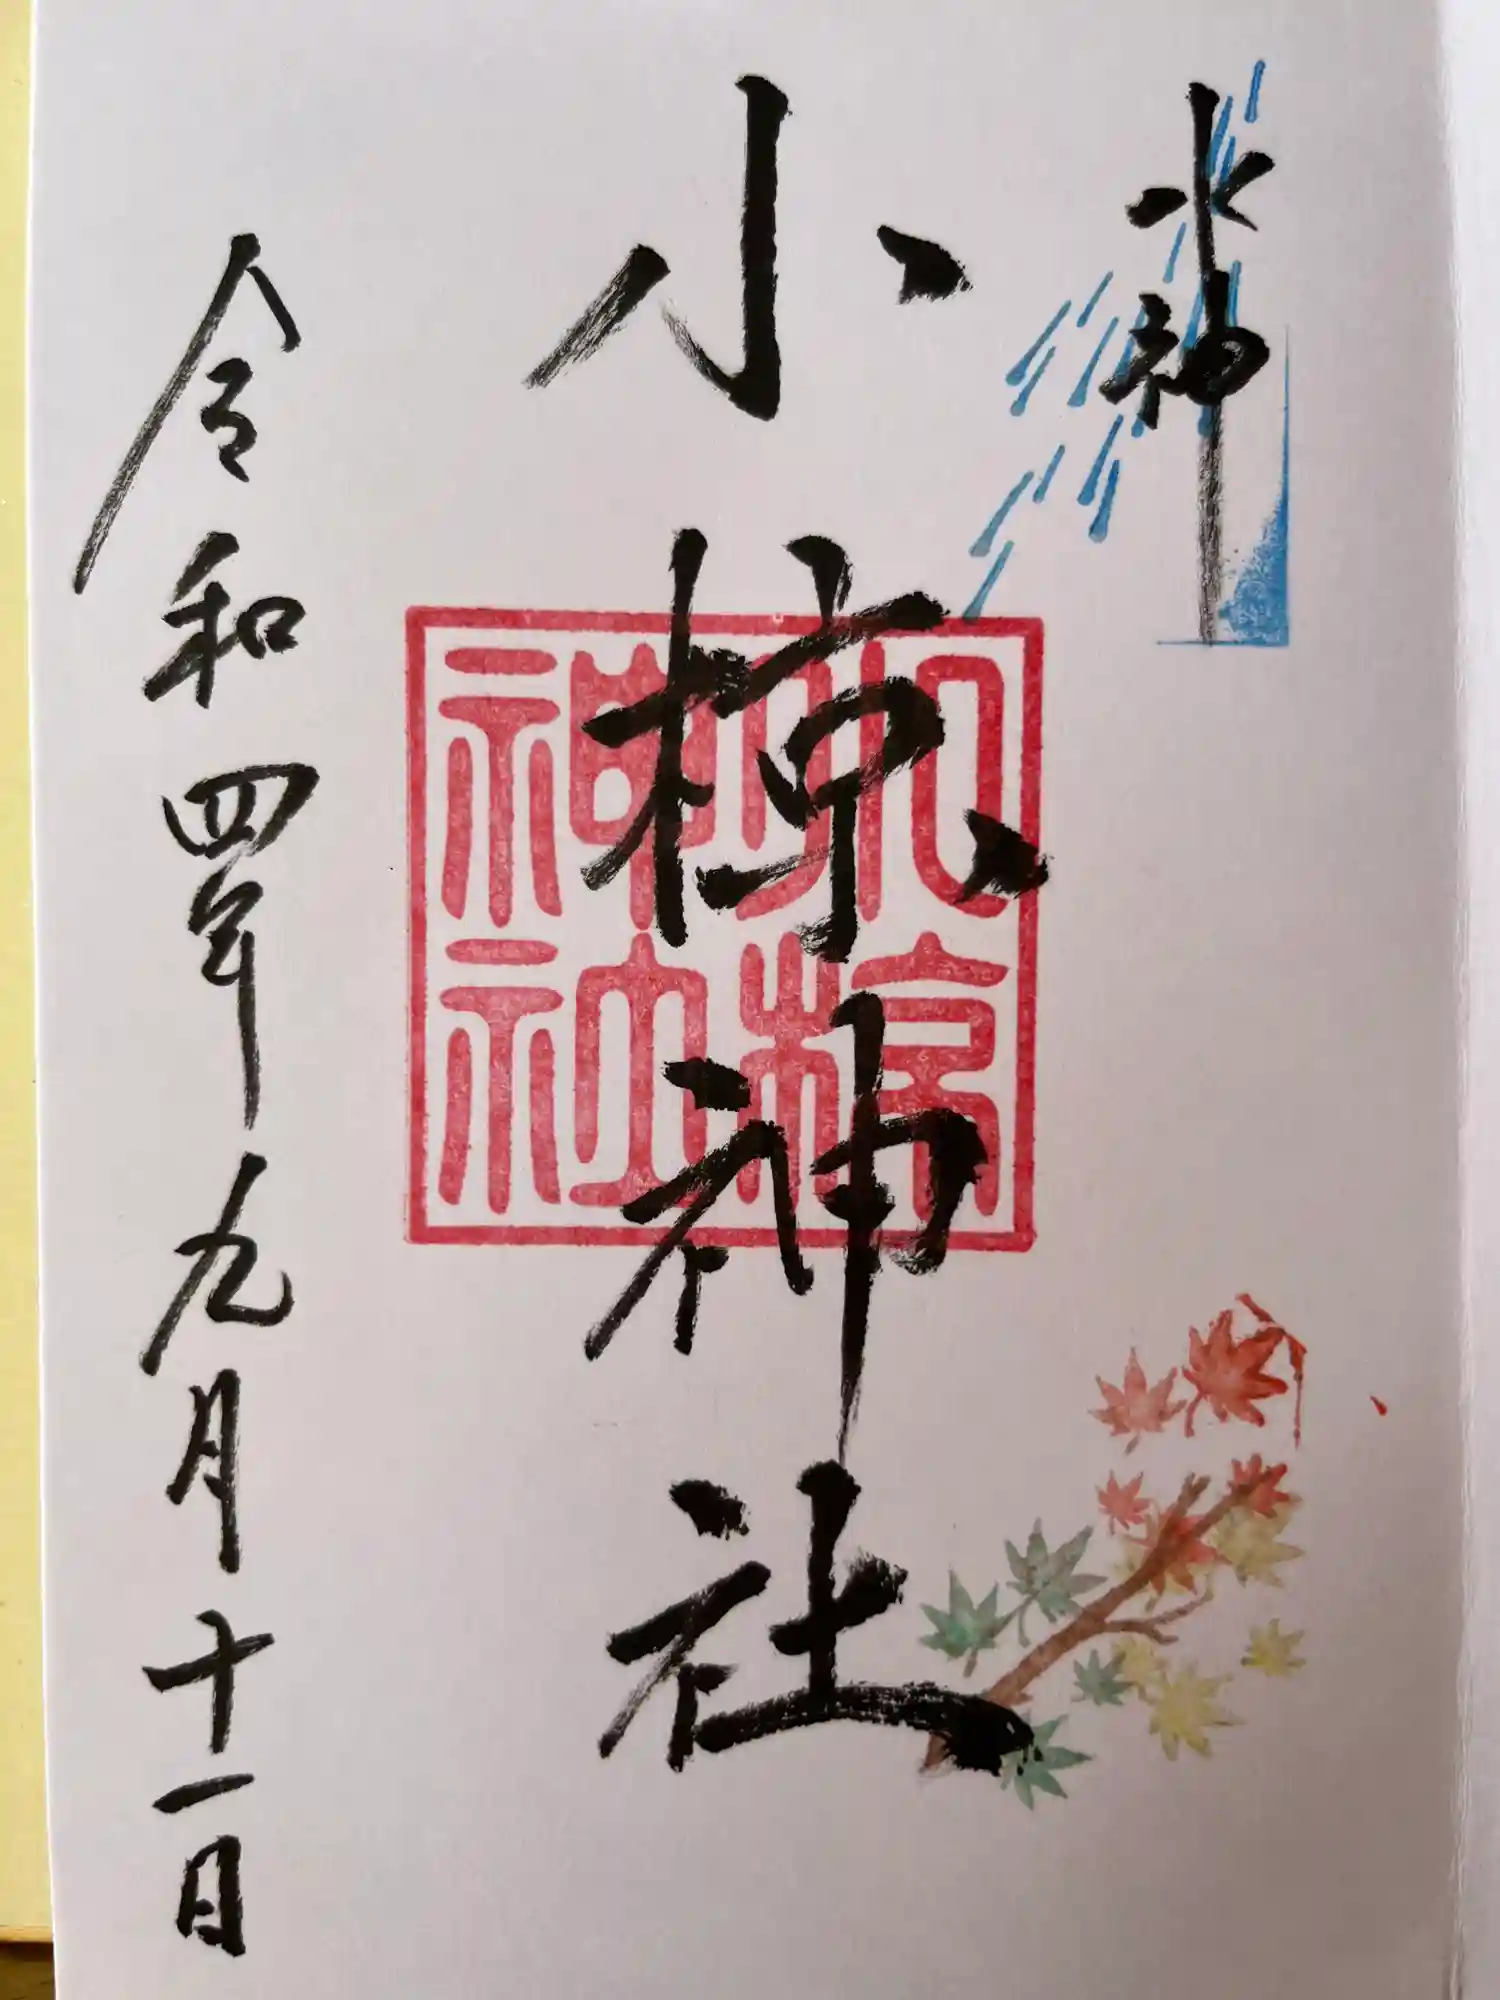 水神
小椋神社
令和四年九月十一日
小椋
神社